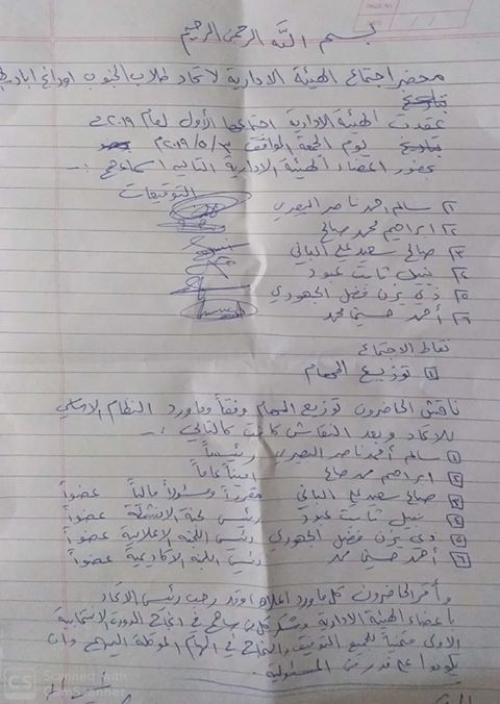 بسم الله الرحمن الرحيم
محضر اجتماع الهيئة الادارية لاتحاد طلاب الجنوب اورانج اباد
عقدت الهيئة الادارية اجتماعها الأول لعام ٢٠١٩م
يوم الجمعة الموافق ٣/٥/٢٠١٩م
بحضور اعضاء الهيئة الادارية التالية اسماءهم :-
التوقيعات
١- سالم احمد ناصر
٢- ابراهيم محمد صالح
٣- صالح سعيد علي
٤- نبيل ثابت عبود
٥- ذي يزن فضل الجهوري
٦- أحمد حسين محمد
نقاط الاجتماع
١ توزيع المهام
ناقش الحاضرون توزيع المهام وفقاً وماورد النظام الاساسي
للاتحاد وبعد النقاش كانت كالتالي :-
١ سالم أحمد ناصر رئيساً
٢ ابراهيم محمد صالح اميناً عاماً
٣ صالح سعيد علي مقرراً ومسئولاً مالياً عضواً
٤ نبيل ثابت عبود رئيس لجنة الانشطة عضواً
٥ ذي يزن فضل الجهوري رئيس اللجنة الاعلامية عضواً
٦ أحمد حسين محمد رئيس اللجنة الاكاديمية عضواً
وأقر الحاضرون كل ماورد اعلاه وقد رحب رئيس الاتحاد
باعضاء الهيئة الادارية وشكر كل من ساهم في انجاح الدورة الانتخابية
الاولى متمنياً للجميع التوفيق والنجاح في المهام الموكلة اليهم وان
يكونوا عند قدر من المسئولية.
CS Scanned with
CamScanner